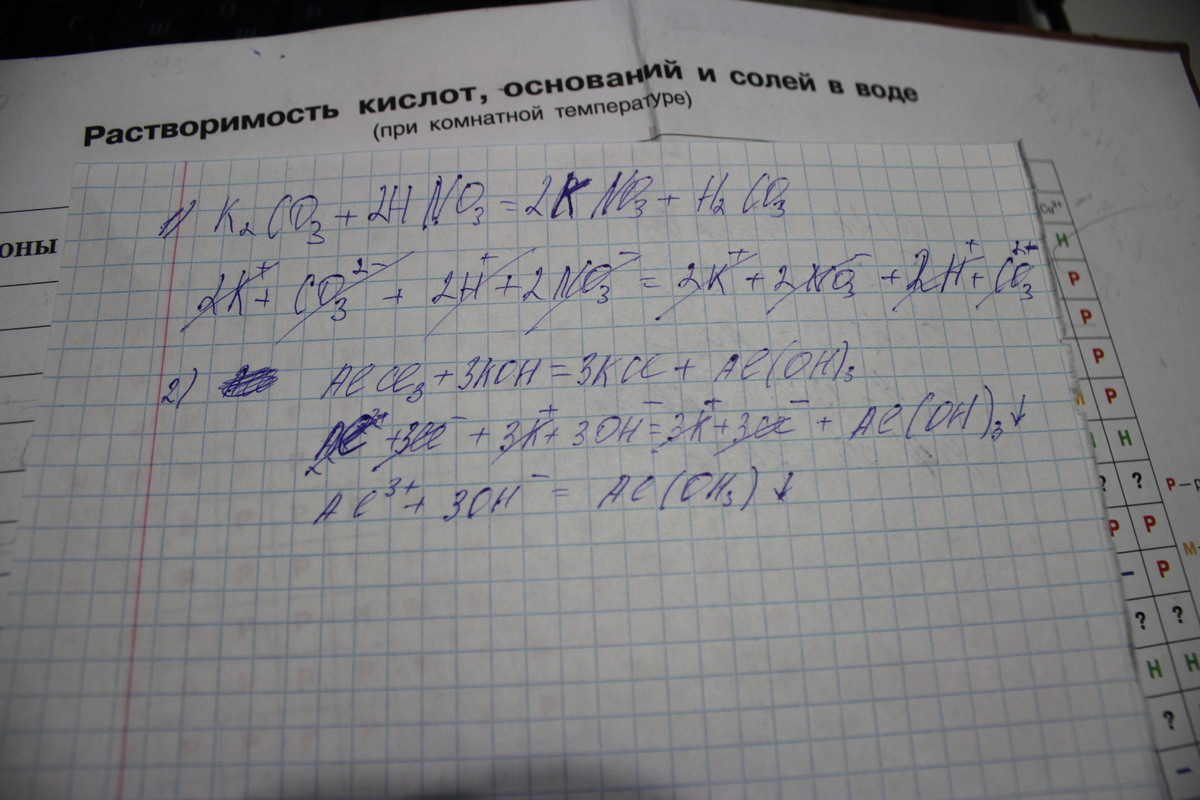 Растворимость кислот, оснований и солей в воде
(при комнатной температуре)
оны
1) K₂CO₃ + 2HNO₃ = 2KNO₃ + H₂CO₃
2K⁺ + CO₃²⁻ + 2H⁺ + 2NO₃⁻ = 2K⁺ + 2NO₃⁻ + 2H⁺ + CO₃²⁺
2) AlCl₃ + 3KOH = 3KCl + Al(OH)₃
Al³⁺ + 3Cl⁻ + 3K⁺ + 3OH⁻ = 3K⁺ + 3Cl⁻ + Al(OH)₃↓
Al³⁺ + 3OH⁻ = Al(OH₃)↓
Н
Р
Р
Р
Р
Н
? ?
Р Р
– Р
? ?
Н Н
?
–
Р–р
М-